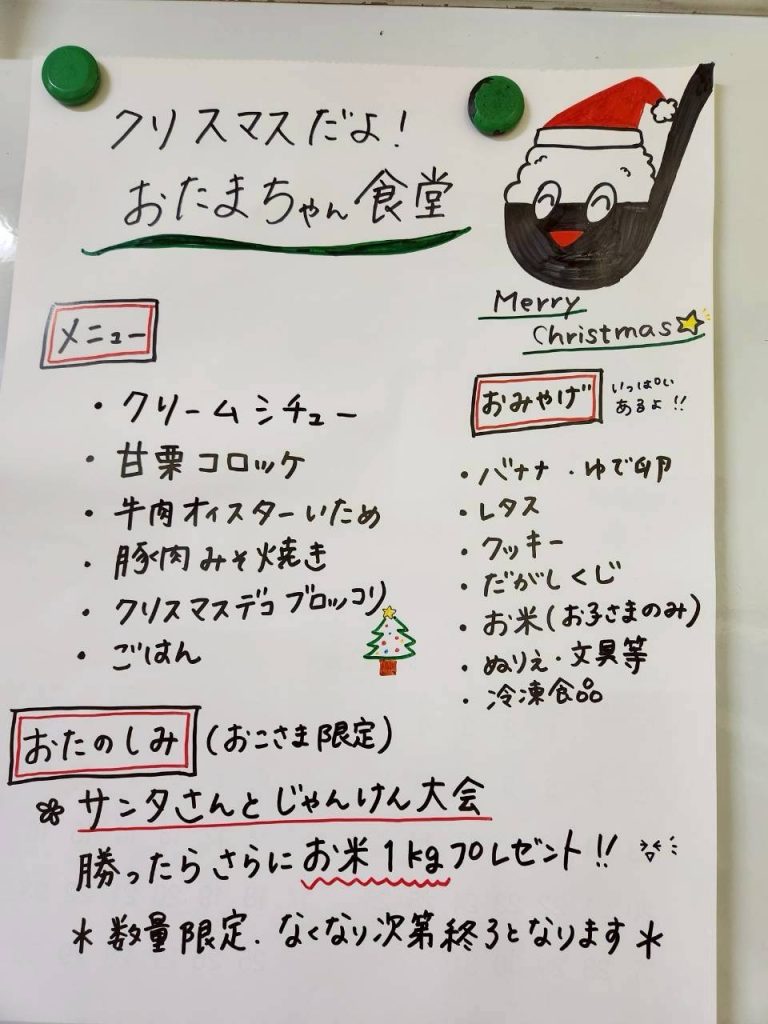 クリスマスだよ!
おたまちゃん食堂
Merry
Christmas
メニュー
・クリームシチュー
・甘栗コロッケ
・牛肉オイスターいため
・豚肉みそ焼き
・クリスマスデコブロッコリ
・ごはん
おみやげ
いっぱい
あるよ!!
・バナナ・ゆで卵
・レタス
・クッキー
・だがしくじ
・お米(お子さまのみ)
・ぬりえ・文具等
・冷凍食品
おたのしみ(おこさま限定)
サンタさんとじゃんけん大会
勝ったらさらにお米1kgプレゼント!!
*数量限定.なくなり次第終了となります*